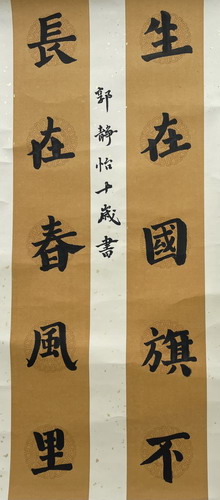 生在國旗下
長在春風里
郭靜怡十歲書